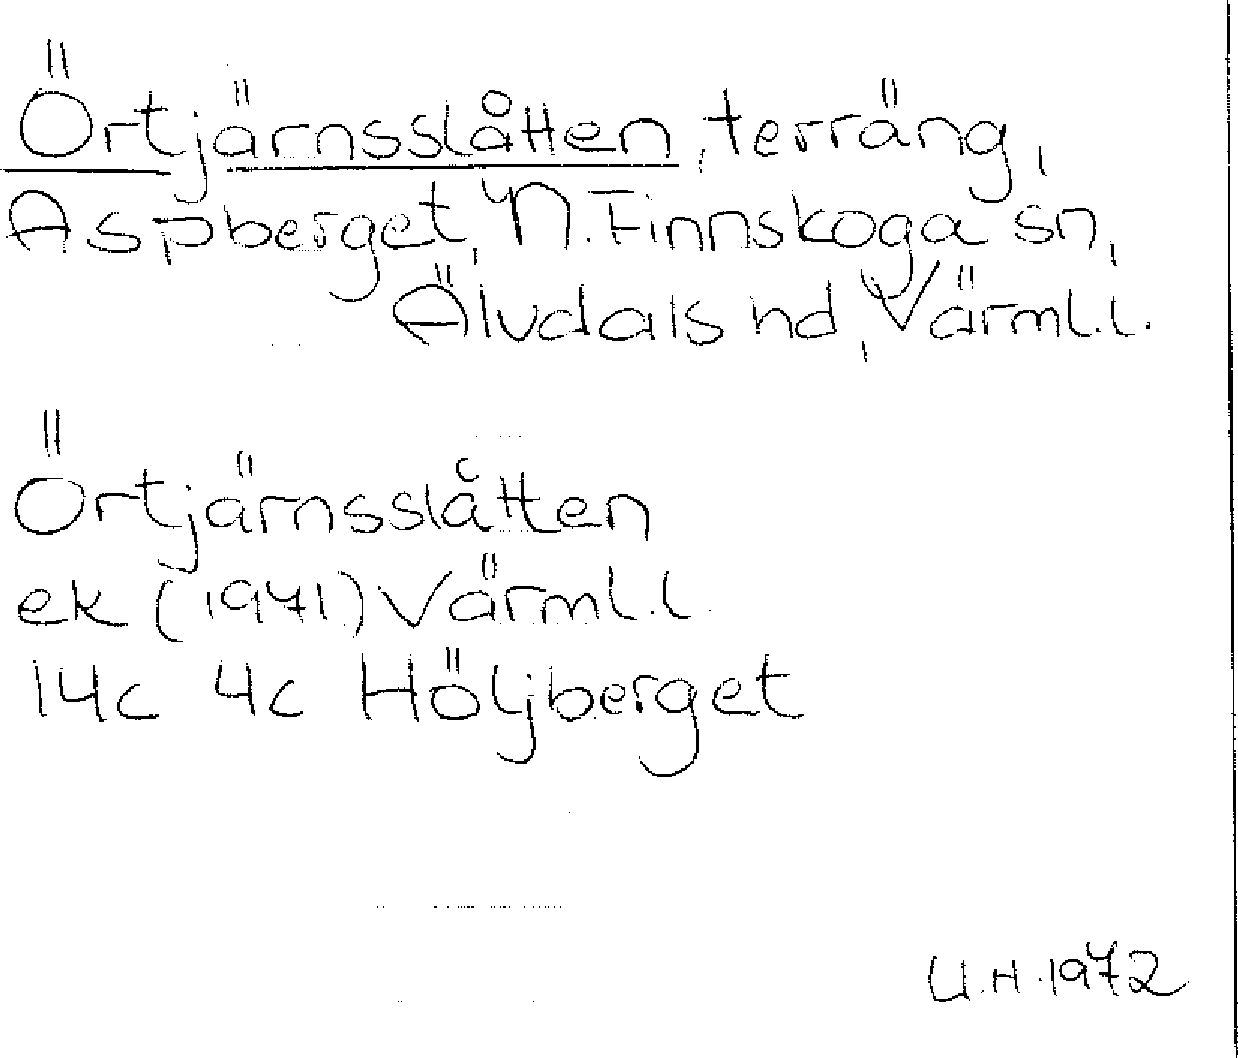 Örtjärnsslåtten, terräng,
Aspberget, N. Finnskoga sn,
Älvdals hd, Värml.l.
Örtjärnsslåtten
ek (1971) Värml.l.
14c 4c Höljberget
U.H. 1972